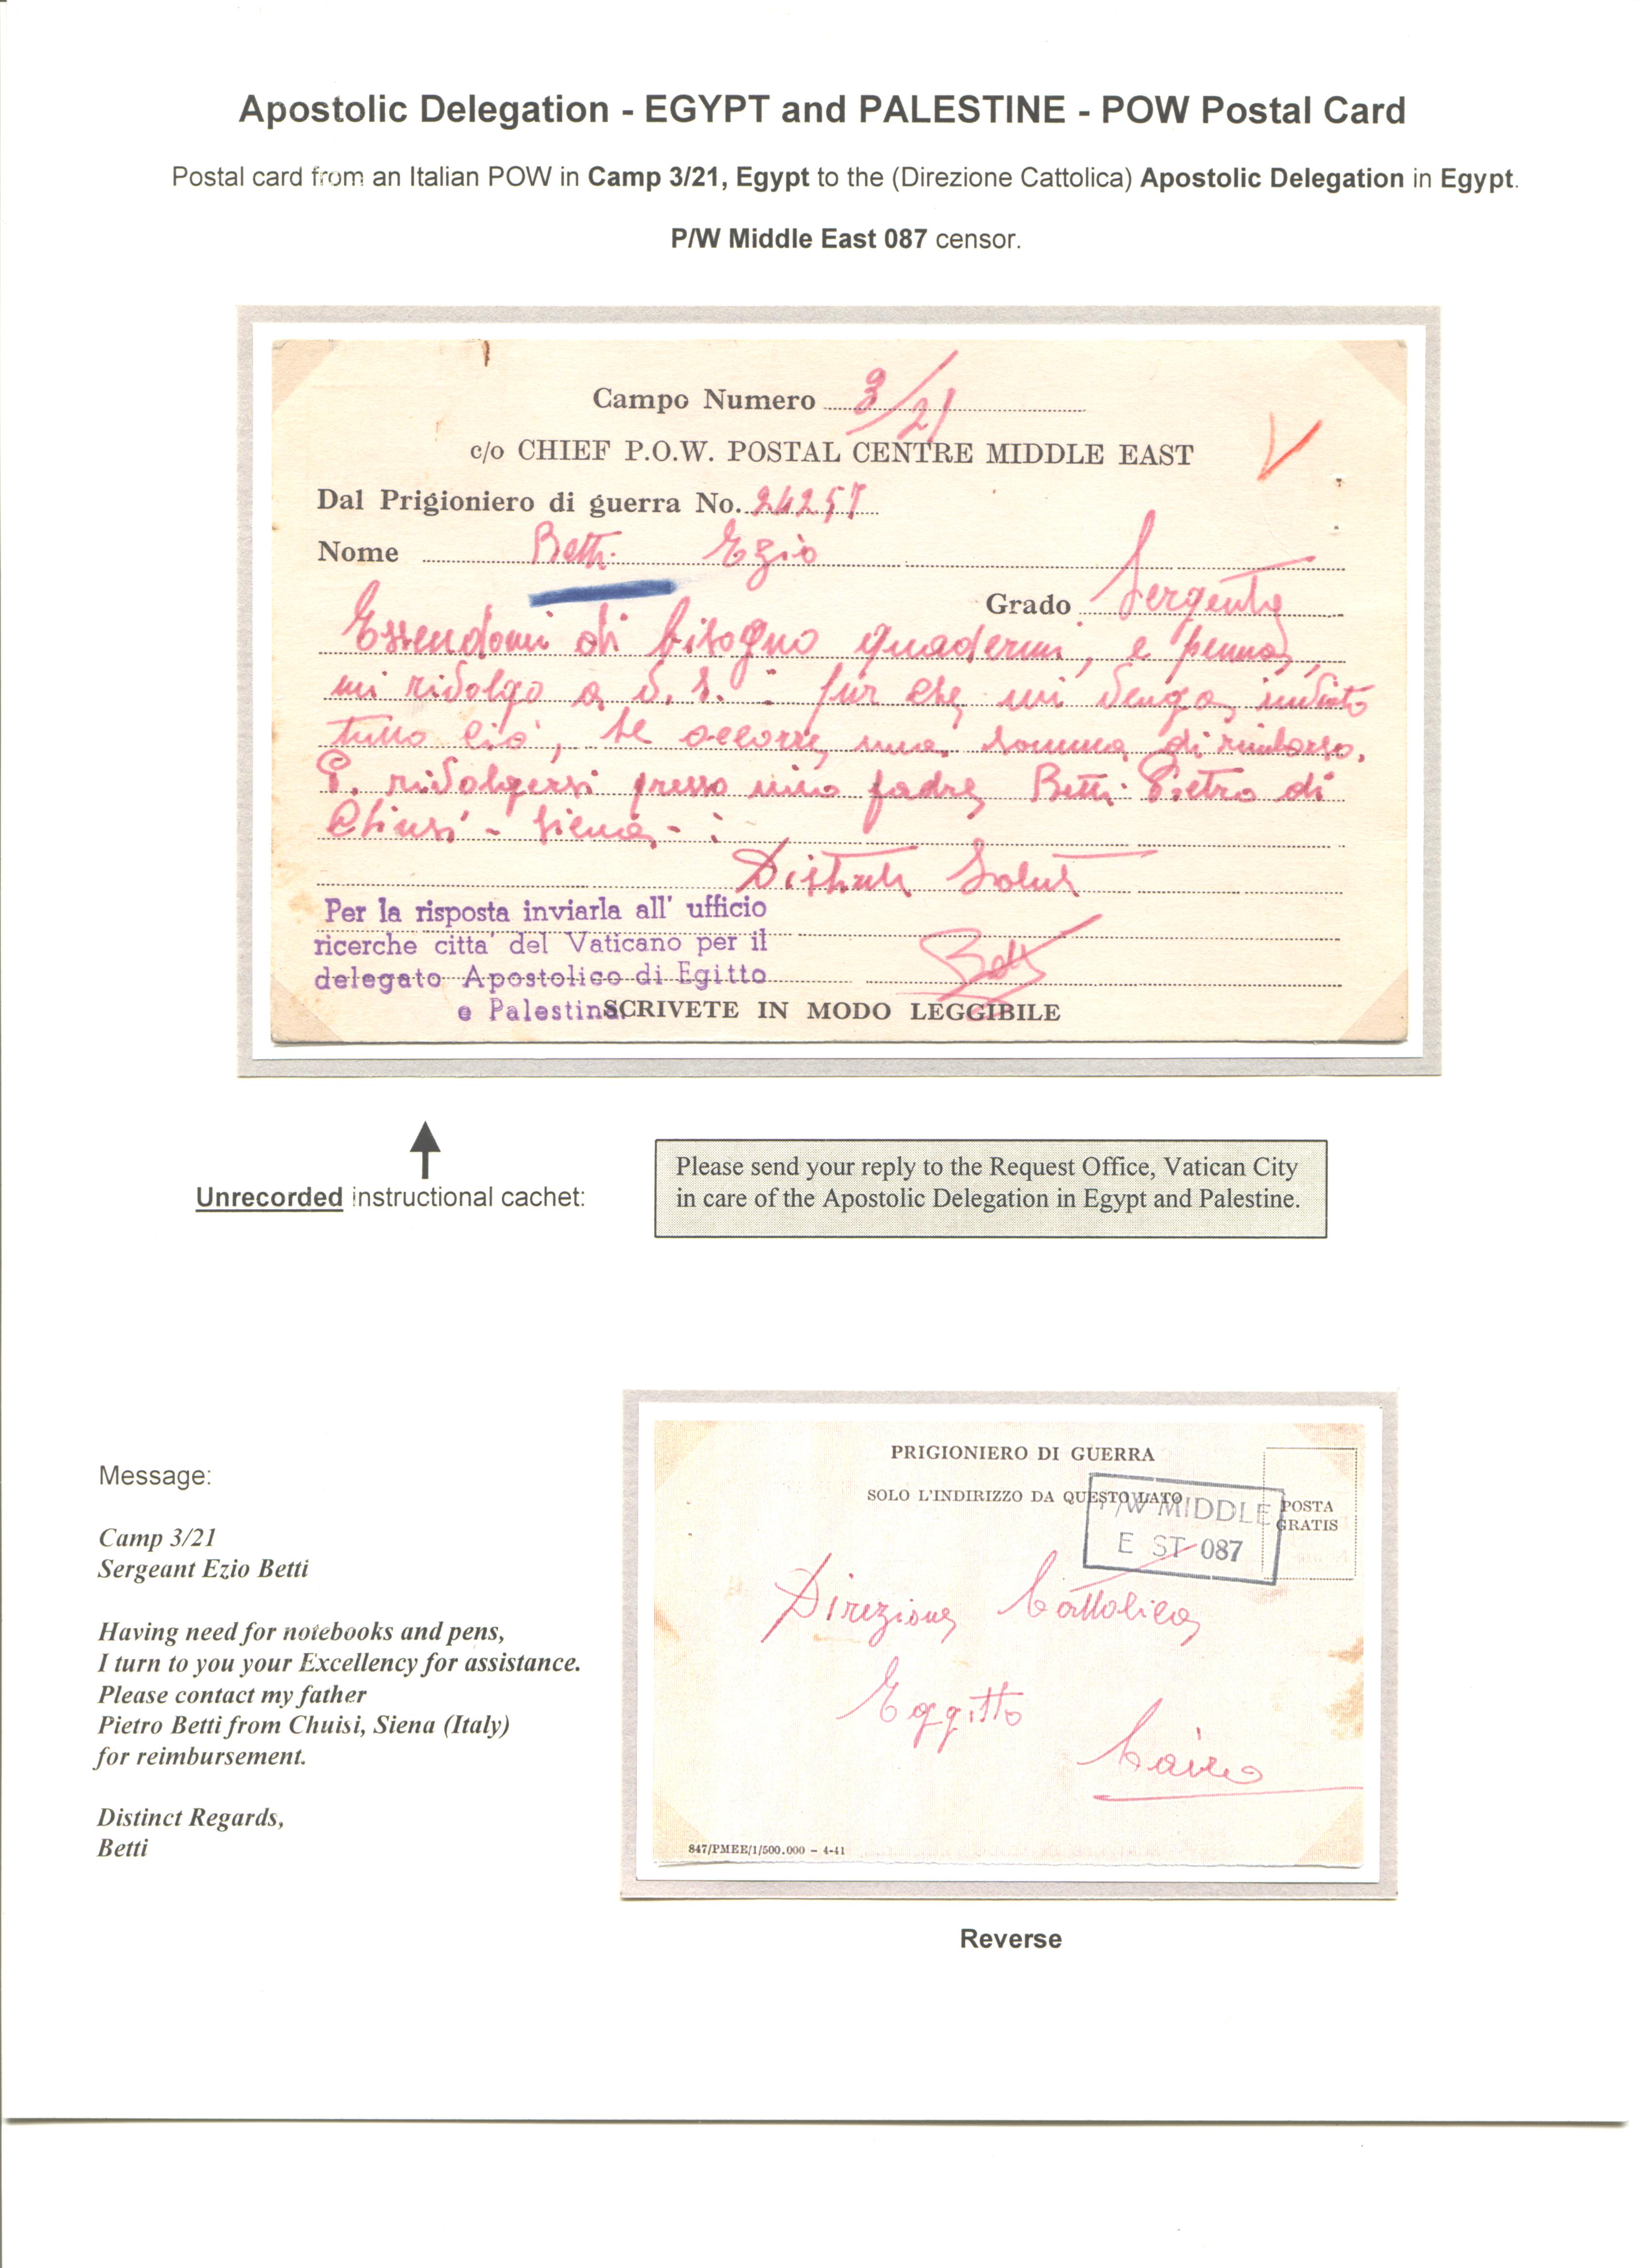 Apostolic Delegation - EGYPT and PALESTINE - POW Postal Card
Postal card from an Italian POW in Camp 3/21, Egypt to the (Direzione Cattolica) Apostolic Delegation in Egypt.
P/W Middle East 087 censor.
Campo Numero 3/21
c/o CHIEF P.O.W. POSTAL CENTRE MIDDLE EAST
Dal Prigioniero di guerra No.
Nome Betti Ezio
Grado Sergente
Essendomi di bisogno quaderni, e penna,
mi rivolgo a V. S. : che mi venga inviato
tutto ciò, se occorre una somma di rimborso,
rivolgersi presso mio padre Betti Pietro di
Chiusi - Siena - :
Distinti Saluti
Betti
Per la risposta inviarla all' ufficio
ricerche citta' del Vaticano per il
delegato Apostolico di Egitto
e Palestina
SCRIVETE IN MODO LEGGIBILE
Unrecorded instructional cachet:
Please send your reply to the Request Office, Vatican City
in care of the Apostolic Delegation in Egypt and Palestine.
Message:
Camp 3/21
Sergeant Ezio Betti
Having need for notebooks and pens,
I turn to you your Excellency for assistance.
Please contact my father
Pietro Betti from Chuisi, Siena (Italy)
for reimbursement.
Distinct Regards,
Betti
PRIGIONIERO DI GUERRA
SOLO L'INDIRIZZO DA QUESTO LATO
POSTA
GRATIS
P/W MIDDLE
E ST 087
Direzione Cattolica
Eggitto
Cairo
847/PMEE/1/500.000 - 4-41
Reverse